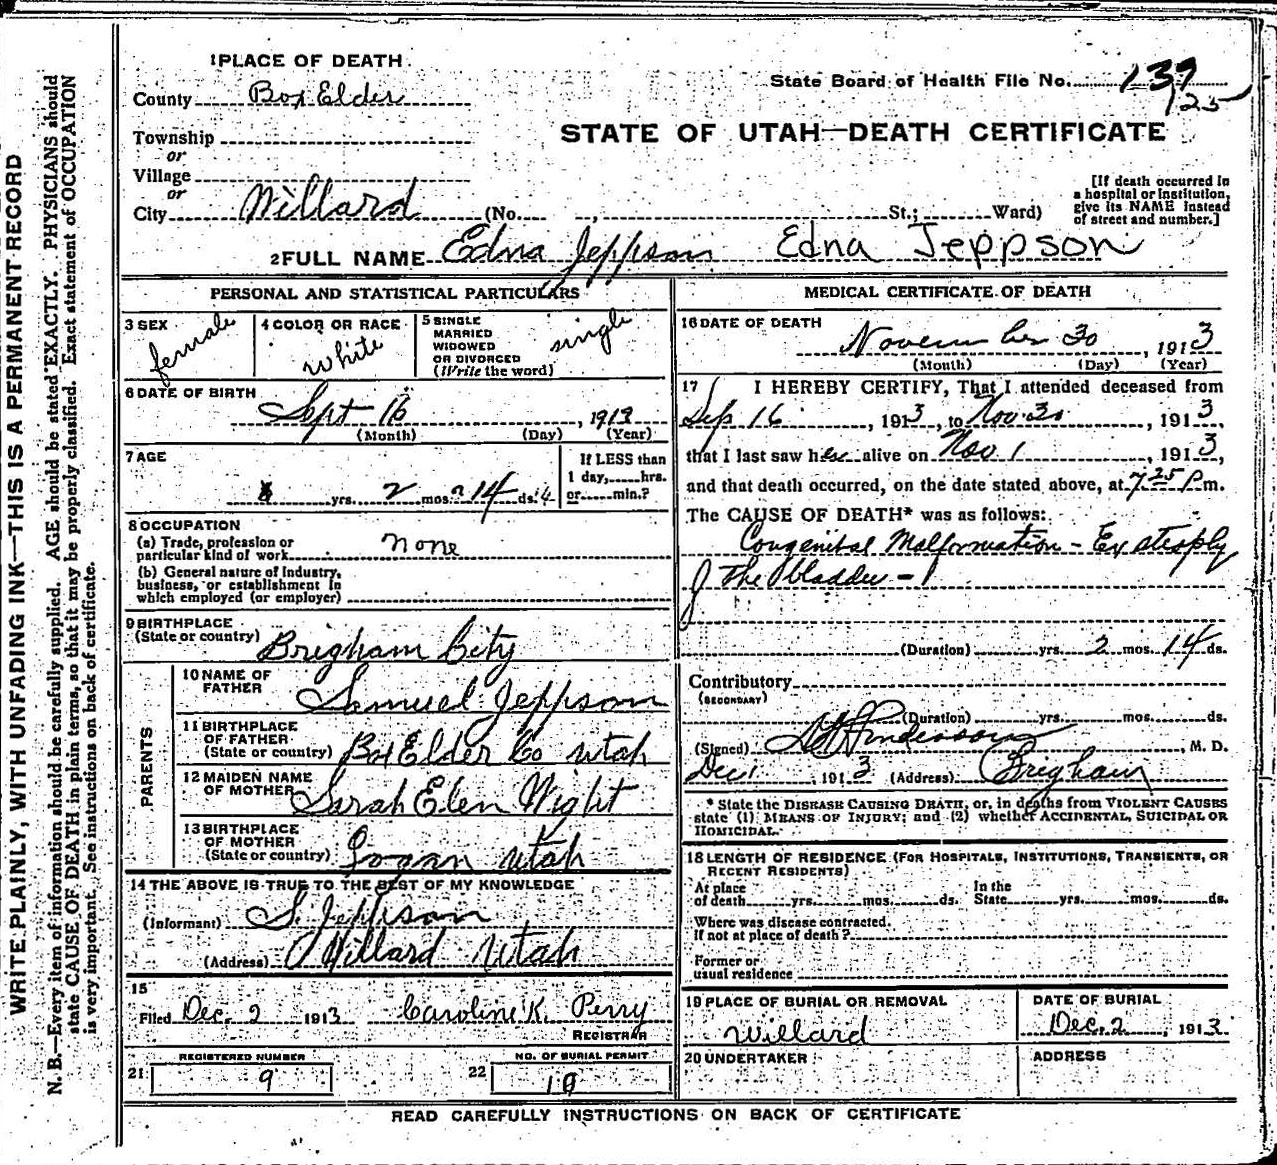 1 PLACE OF DEATH
State Board of Health File No. 139
125
County Box Elder
STATE OF UTAH—DEATH CERTIFICATE
Township
or
Village
or
City Willard (No. , St.; Ward)
[If death occurred in
a hospital or institution,
give its NAME instead
of street and number.]
2 FULL NAME Edna Jeppson Edna Jeppson
PERSONAL AND STATISTICAL PARTICULARS
3 SEX female
4 COLOR OR RACE white
5 SINGLE
MARRIED
WIDOWED
OR DIVORCED
(Write the word) single
6 DATE OF BIRTH
Sept 16, 1913
(Month) (Day) (Year)
7 AGE
yrs. 2 mos. 14 ds. 14
If LESS than
1 day, hrs.
or min.?
8 OCCUPATION
(a) Trade, profession or
particular kind of work none
(b) General nature of industry,
business, or establishment in
which employed (or employer)
9 BIRTHPLACE
(State or country) Brigham City
PARENTS
10 NAME OF
FATHER Samuel Jeppson
11 BIRTHPLACE
OF FATHER
(State or country) Box Elder Co Utah
12 MAIDEN NAME
OF MOTHER Sarah Elen Wight
13 BIRTHPLACE
OF MOTHER
(State or country) Logan Utah
14 THE ABOVE IS TRUE TO THE BEST OF MY KNOWLEDGE
(Informant) S. Jeppson
(Address) Willard Utah
15
Filed Dec. 2 1913 Caroline K. Perry
REGISTRAR
REGISTERED NUMBER
21 9
NO. OF BURIAL PERMIT
22 10
MEDICAL CERTIFICATE OF DEATH
16 DATE OF DEATH
November 30, 1913
(Month) (Day) (Year)
17 I HEREBY CERTIFY, That I attended deceased from
Sep 16, 1913, to Nov. 30, 1913,
that I last saw her alive on Nov 1, 1913,
and that death occurred, on the date stated above, at 7 25 P m.
The CAUSE OF DEATH* was as follows:
Congenital Malformation - Exstrophy
of the bladder -
(Duration) yrs. 2 mos. 14 ds.
Contributory
(SECONDARY)
(Duration) yrs. mos. ds.
(Signed) , M. D.
Dec 1 1913 (Address) Brigham
* State the DISEASE CAUSING DEATH, or, in deaths from VIOLENT CAUSES
state (1) MEANS OF INJURY; and (2) whether ACCIDENTAL, SUICIDAL OR
HOMICIDAL.
18 LENGTH OF RESIDENCE (FOR HOSPITALS, INSTITUTIONS, TRANSIENTS, OR
RECENT RESIDENTS)
At place
of death yrs. mos. ds.
In the
State yrs. mos. ds.
Where was disease contracted.
If not at place of death?
Former or
usual residence
19 PLACE OF BURIAL OR REMOVAL
Willard
DATE OF BURIAL
Dec. 2, 1913
20 UNDERTAKER
ADDRESS
READ CAREFULLY INSTRUCTIONS ON BACK OF CERTIFICATE
WRITE PLAINLY, WITH UNFADING INK—THIS IS A PERMANENT RECORD
N. B.—Every item of information should be carefully supplied. AGE should be stated EXACTLY. PHYSICIANS should
state CAUSE OF DEATH in plain terms, so that it may be properly classified. Exact statement of OCCUPATION
is very important. See instructions on back of certificate.